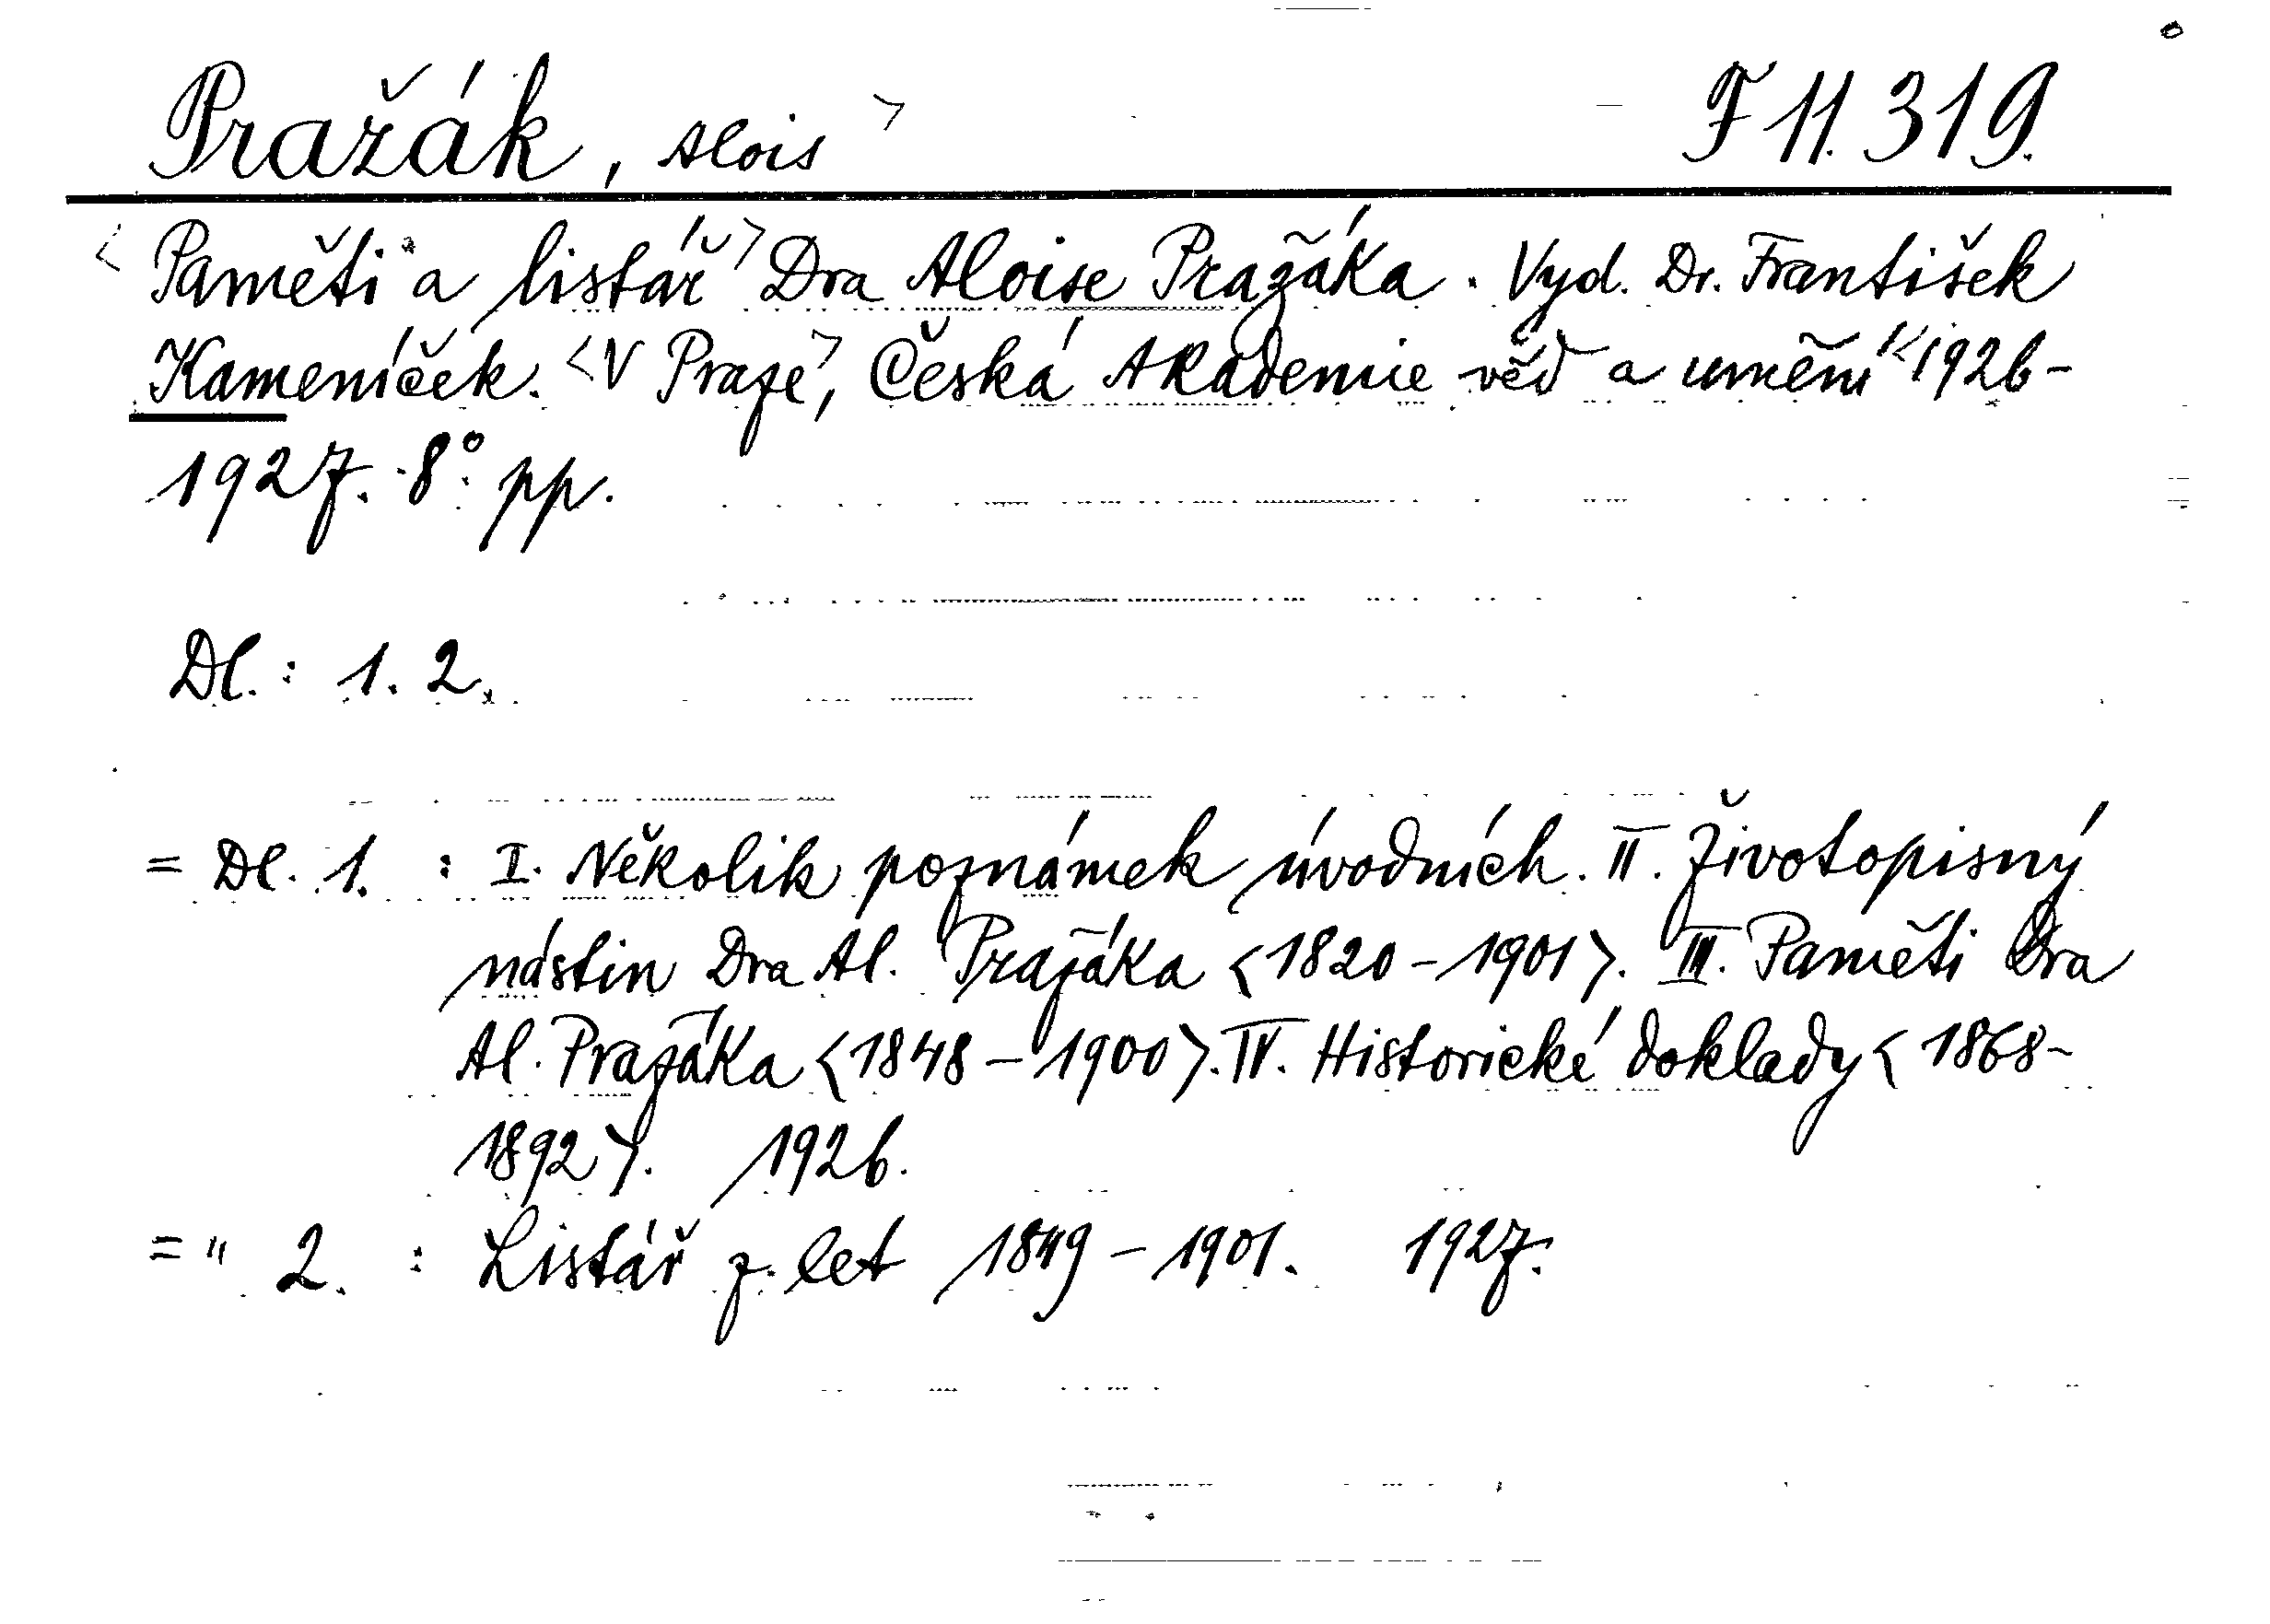 Pražák, Alois > F 11.319.
< Paměti a listář > Dra Aloise Pražáka. Vyd. Dr. František
Kameníček. < V Praze >, Česká Akademie věd a umění < 1926-
1927. 8° pp.
Dl.: 1. 2.
= Dl. 1. : I. Několik poznámek úvodních. II. Životopisný
nástin Dra Al. Pražáka < 1820-1901 >. III. Paměti Dra
Al. Pražáka < 1848-1900 >. IV. Historické doklady < 1868-
1892 >. 1926.
= " 2. : Listář z let 1849-1901. 1927.